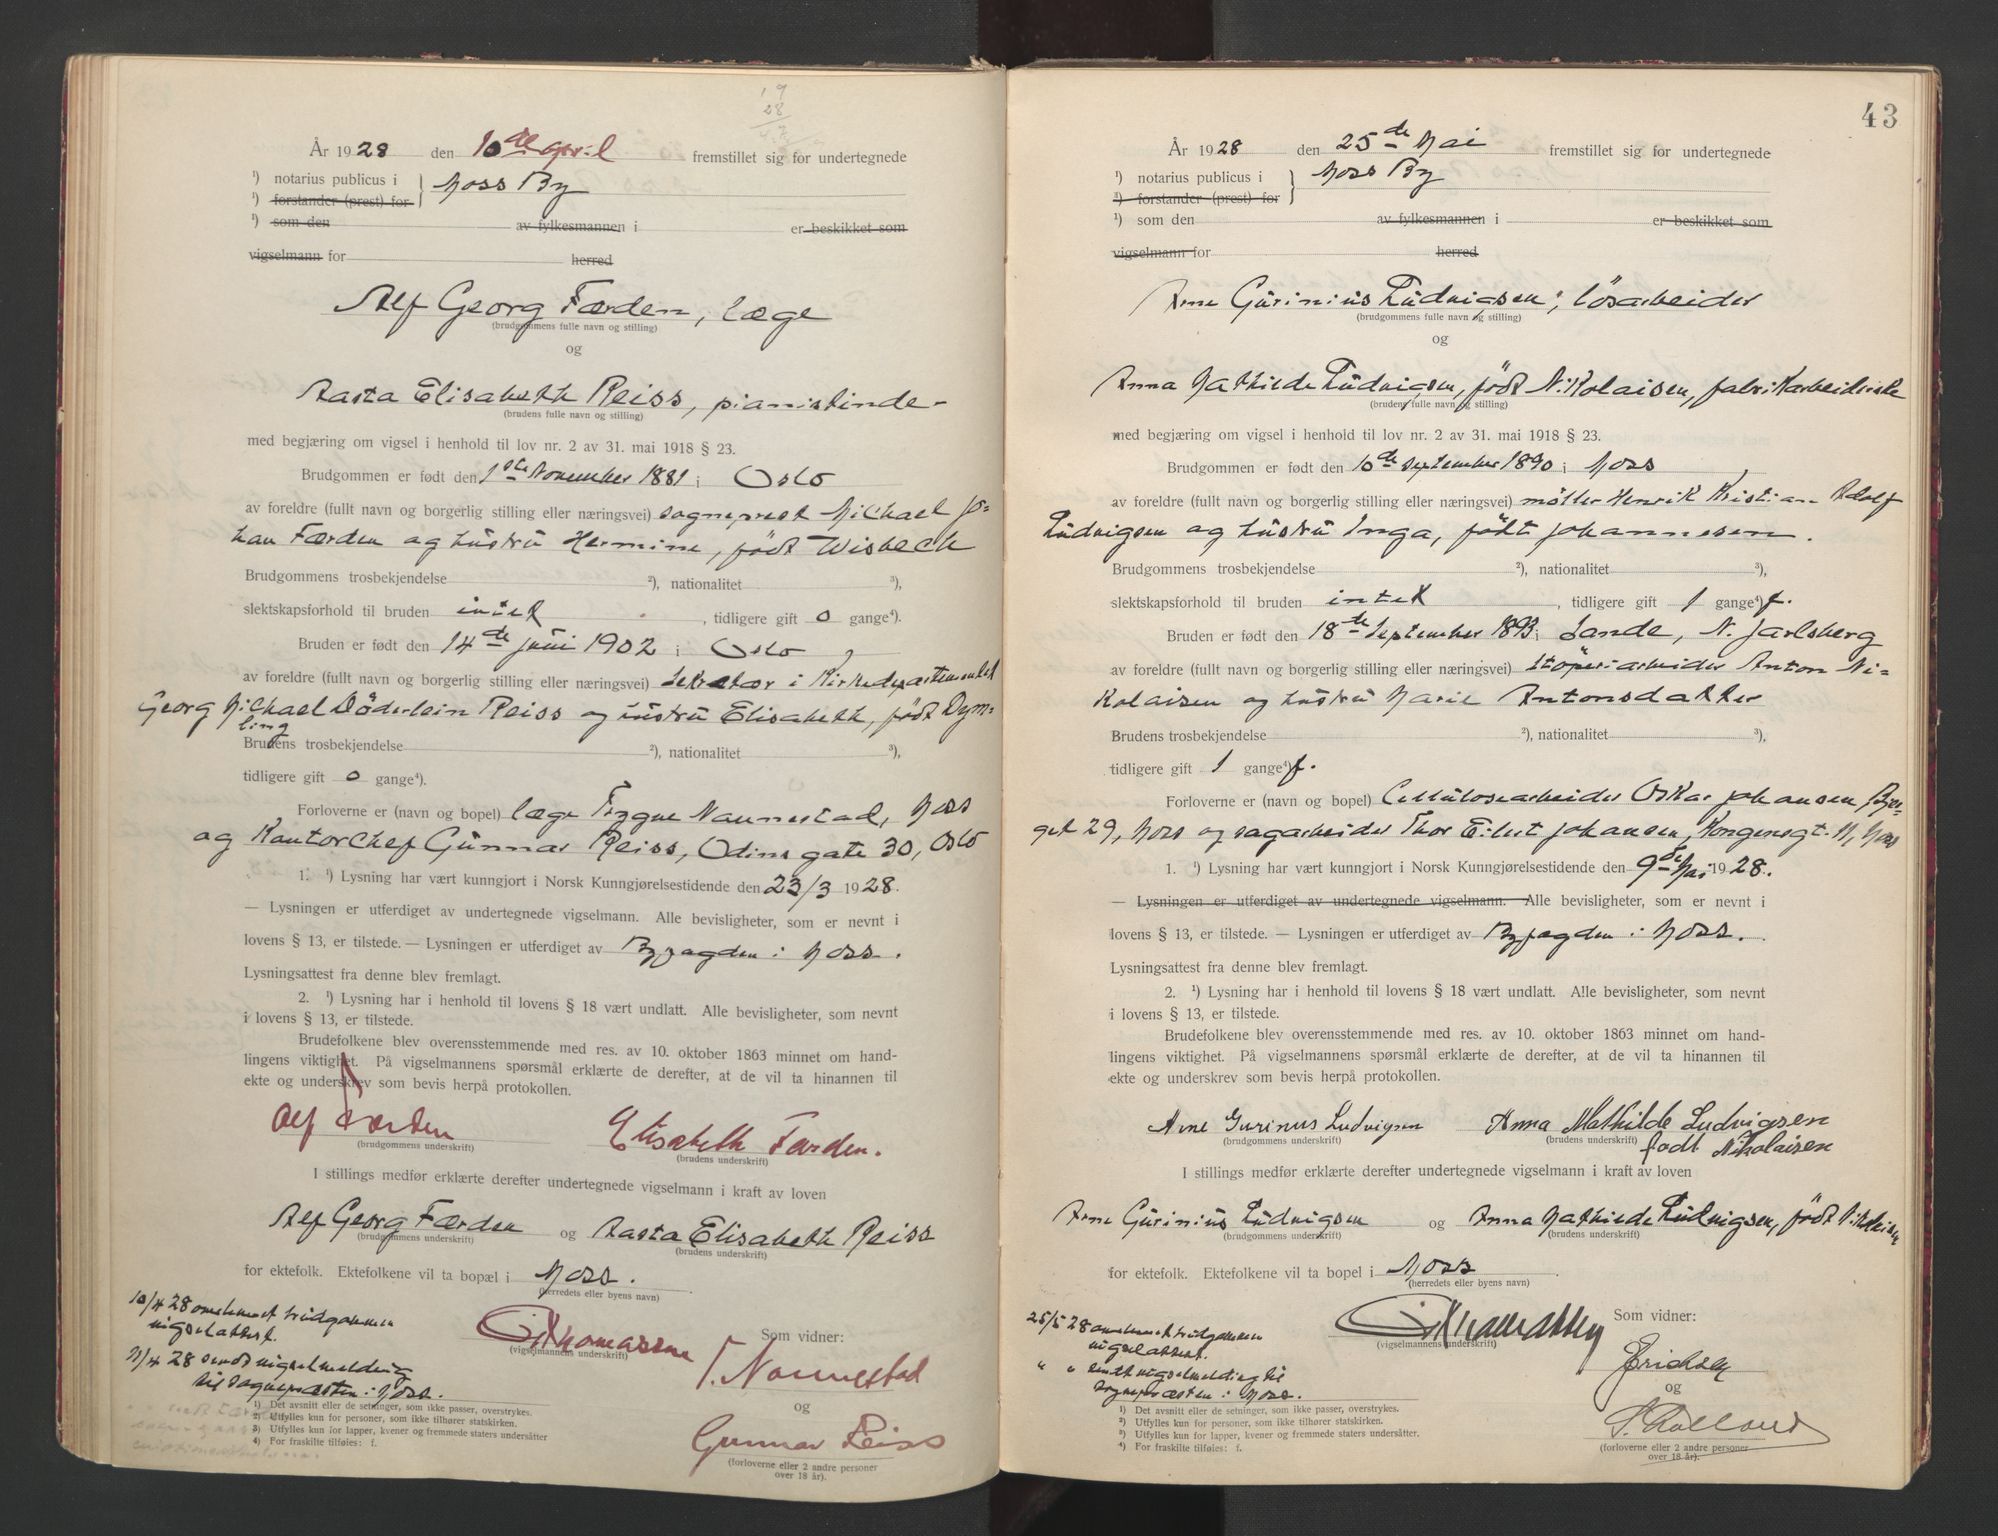 19
28
År 1928 den 10de april fremstillet sig for undertegnede
¹) notarius publicus i } Moss By
¹) forstander (prest) for
¹) som den av fylkesmannen i er beskikket som
vigselmann for herred
Alf Georg Færden, læge
(brudgommens fulle navn og stilling)
og
Aasta Elisabeth Reiss, pianistinde-
(brudens fulle navn og stilling)
med begjæring om vigsel i henhold til lov nr. 2 av 31. mai 1918 § 23.
Brudgommen er født den 1ste November 1881 i Oslo,
av foreldre (fullt navn og borgerlig stilling eller næringsvei) sogneprest Michael Jo=
han Færden og hustru Hermine, født Wisbech
Brudgommens trosbekjendelse ²), nationalitet ³),
slektskapsforhold til bruden intet, tidligere gift 0 gange⁴).
Bruden er født den 14de juni 1902 i Oslo,
av foreldre (fullt navn og borgerlig stilling eller næringsvei) Sekretær i Kirkedepartementet
Georg Michael Döderlein Reiss og hustru Elisabeth, født Dym=
ling
Brudens trosbekjendelse ²), nationalitet ³),
tidligere gift 0 gange⁴).
Forloverne er (navn og bopel) læge Trygve Nannestad, Moss
og Kontorchef Gunnar Reiss, Odins gate 30, Oslo
1. ¹) Lysning har vært kunngjort i Norsk Kunngjørelsestidende den 23/3 1928.
— Lysningen er utferdiget av undertegnede vigselmann. Alle bevisligheter, som er nevnt i
lovens § 13, er tilstede. — Lysningen er utferdiget av Byfogden i Moss.
Lysningsattest fra denne blev fremlagt.
2. ¹) Lysning har i henhold til lovens § 18 vært undlatt. Alle bevisligheter, som nevnt
i lovens § 13, er tilstede.
Brudefolkene blev overensstemmende med res. av 10. oktober 1863 minnet om hand-
lingens viktighet. På vigselmannens spørsmål erklærte de derefter, at de vil ta hinannen til
ekte og underskrev som bevis herpå protokollen.
Alf Færden Elisabeth Færden.
(brudgommens underskrift) (brudens underskrift)
I stillings medfør erklærte derefter undertegnede vigselmann i kraft av loven
Alf Georg Færden og Aasta Elisabeth Reiss
(brudgommens underskrift) (brudens underskrift)
for ektefolk. Ektefolkene vil ta bopæl i Moss.
(herredets eller byens navn)
10/4 28 omskrevet brudgommen
vigselattest.
11/4 28 sendt vigselmelding
til sognepresten i Moss.
Thomassen
(vigselmannens underskrift)
Som vidner:
T. Nannestad
og
Gunnar Reiss
(forloverne eller 2 andre personer
over 18 år).
¹) Det avsnitt eller de setninger, som ikke passer, overstrykes.
²) Utfylles kun for personer, som ikke tilhører statskirken.
³) Utfylles kun for lapper, kvener og fremmede staters undersåtter
⁴) For fraskilte tilføies: f.
43
År 1928 den 25de Mai fremstillet sig for undertegnede
¹) notarius publicus i } Moss By
¹) forstander (prest) for
¹) som den av fylkesmannen i er beskikket som
vigselmann for herred
Arne Gurinius Ludvigsen, løsarbeider
(brudgommens fulle navn og stilling)
og
Anna Mathilde Ludvigsen, født Nikolaisen, fabrikarbeiderske
(brudens fulle navn og stilling)
med begjæring om vigsel i henhold til lov nr. 2 av 31. mai 1918 § 23.
Brudgommen er født den 10de September 1890 i Moss,
av foreldre (fullt navn og borgerlig stilling eller næringsvei) møller Henrik Kristian Adolf
Ludvigsen og hustru Inga, født Johannesen.
Brudgommens trosbekjendelse ²), nationalitet ³),
slektskapsforhold til bruden intet, tidligere gift 1 gange⁴) f.
Bruden er født den 18de September 1893 i Sande, N. Jarlsberg
av foreldre (fullt navn og borgerlig stilling eller næringsvei) Støperiarbeider Anton Ni=
kolaisen og hustru Marie Antonsdatter
Brudens trosbekjendelse ²), nationalitet ³),
tidligere gift 1 gange⁴) f.
Forloverne er (navn og bopel) Cellulosearbeider Oskar Johansen
gt 29, Moss og sagarbeider Thor Eilert Johansen, Kongensgt. 11, Moss
1. ¹) Lysning har vært kunngjort i Norsk Kunngjørelsestidende den 9de Mai 1928.
— Lysningen er utferdiget av undertegnede vigselmann. — Alle bevisligheter, som er nevnt i
lovens § 13, er tilstede. — Lysningen er utferdiget av Byfogden i Moss.
Lysningsattest fra denne blev fremlagt.
2. ¹) Lysning har i henhold til lovens § 18 vært undlatt. Alle bevisligheter, som nevnt
i lovens § 13, er tilstede.
Brudefolkene blev overensstemmende med res. av 10. oktober 1863 minnet om hand-
lingens viktighet. På vigselmannens spørsmål erklærte de derefter, at de vil ta hinannen til
ekte og underskrev som bevis herpå protokollen.
Arne Gurinus Ludvigsen Anna Mathilde Ludvigsen
(brudgommens underskrift) (brudens underskrift) født Nikolaisen
I stillings medfør erklærte derefter undertegnede vigselmann i kraft av loven
Arne Gurinius Ludvigsen og Anna Mathilde Ludvigsen, født Nikolaisen
(brudgommens underskrift) (brudens underskrift)
for ektefolk. Ektefolkene vil ta bopel i Moss
(herredets eller byens navn)
25/5 28 omskrevet brudgommen
vigselattest.
" " sendt vigselmelding til
sognepresten i Moss.
Thomassen
(vigselmannens underskrift)
Som vidner:
Erichsen
og
(forloverne eller 2 andre personer
over 18 år).
¹) Det avsnitt eller de setninger, som ikke passer, overstrykes.
²) Utfylles kun for personer, som ikke tilhører statskirken.
³) Utfylles kun for lapper, kvener og fremmede staters undersåtter.
⁴) For fraskilte tilføies: f.